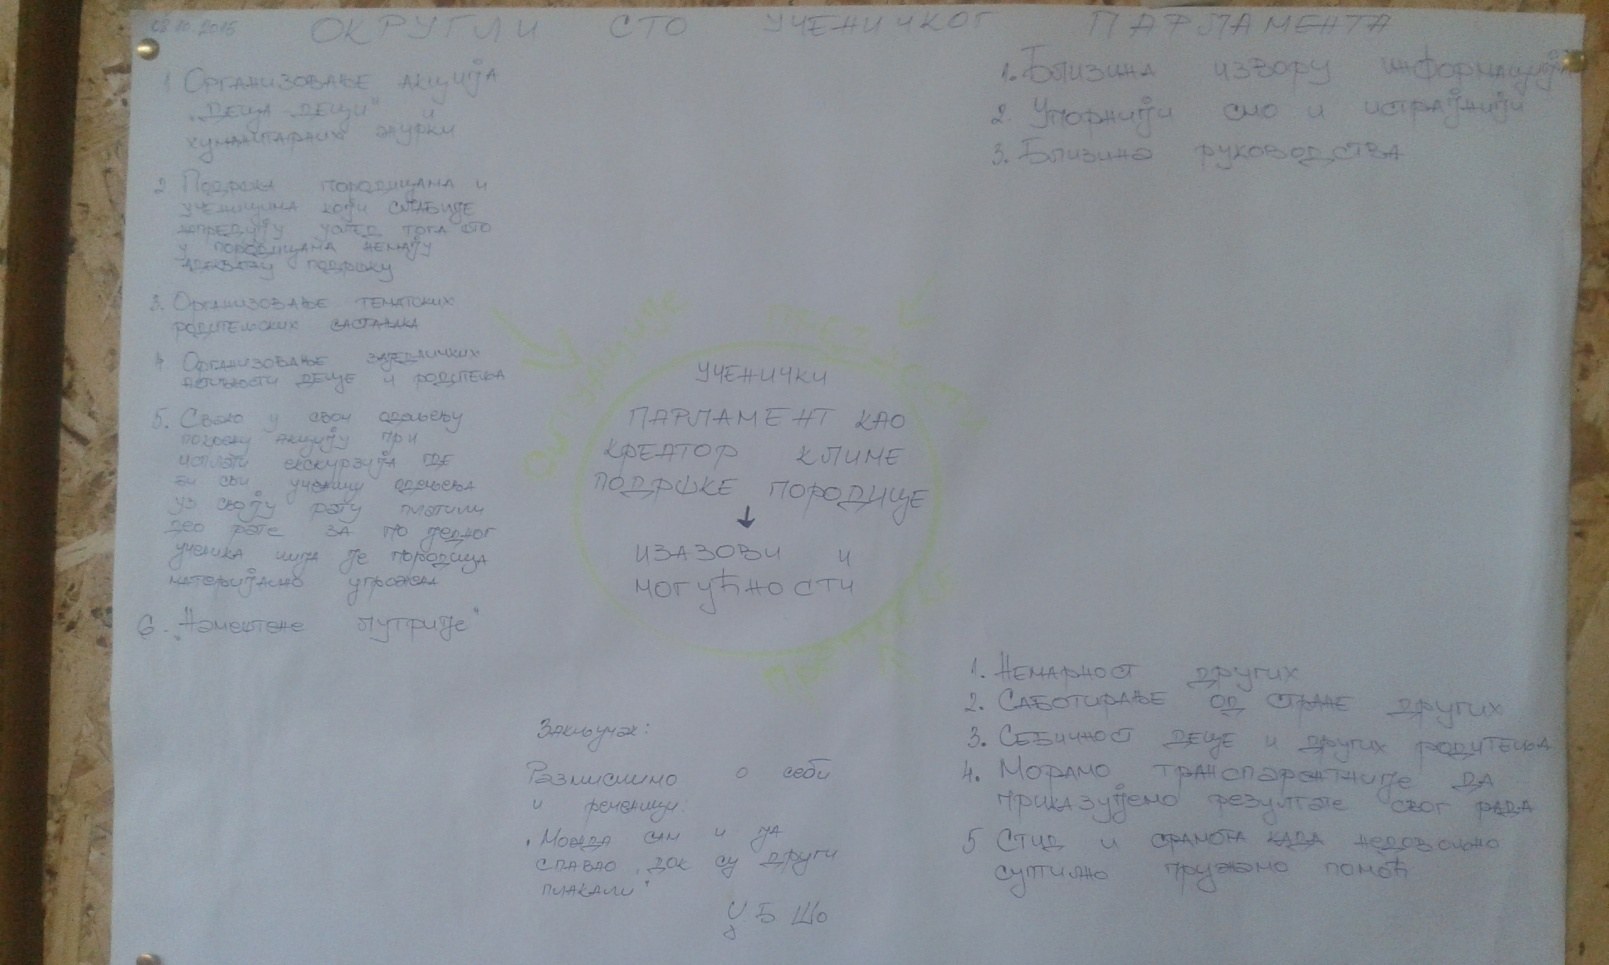 08.10.2015
ОКРУГЛИ СТО УЧЕНИЧКОГ ПАРЛАМЕНТА
1 Организовање акција
"Деца деци" и
хуманитарних журки
2. Подршка породицама и
ученицима који слабије
напредују услед тога што
у породицама немају
адекватну подршку
3. Организовање тематских
родитељских састанака
4 Организовање заједничких
активности деце и родитеља
5. Свако у свом одељењу
покрену акцију при
исплати екскурзија где
би сви ученици одељења
уз своју рату платили
део рате за по једног
ученика чија је породица
материјално угрожена
6. "Намештене лутрије"
1. Близина извору информација
2. Упорнији смо и истрајнији
3. Близина руководства
СИТУАЦИЈЕ
ПРЕДНОСТИ
УЧЕНИЧКИ
ПАРЛАМЕНТ КАО
КРЕАТОР КЛИМЕ
ПОДРШКЕ ПОРОДИЦЕ
ИЗАЗОВИ И
МОГУЋНОСТИ
1. Немарност других
2. Саботирање од стране других
3. Себичност деце и других родитеља
4. Морамо транспарентније да
приказујемо резултате свог рада
5 Стид и срамота када недовољно
суптилно пружамо помоћ
Закључак:
Размислимо о себи
и реченици:
"Можда сам и ја
спавао, док су други
плакали"
Џ Б Шо